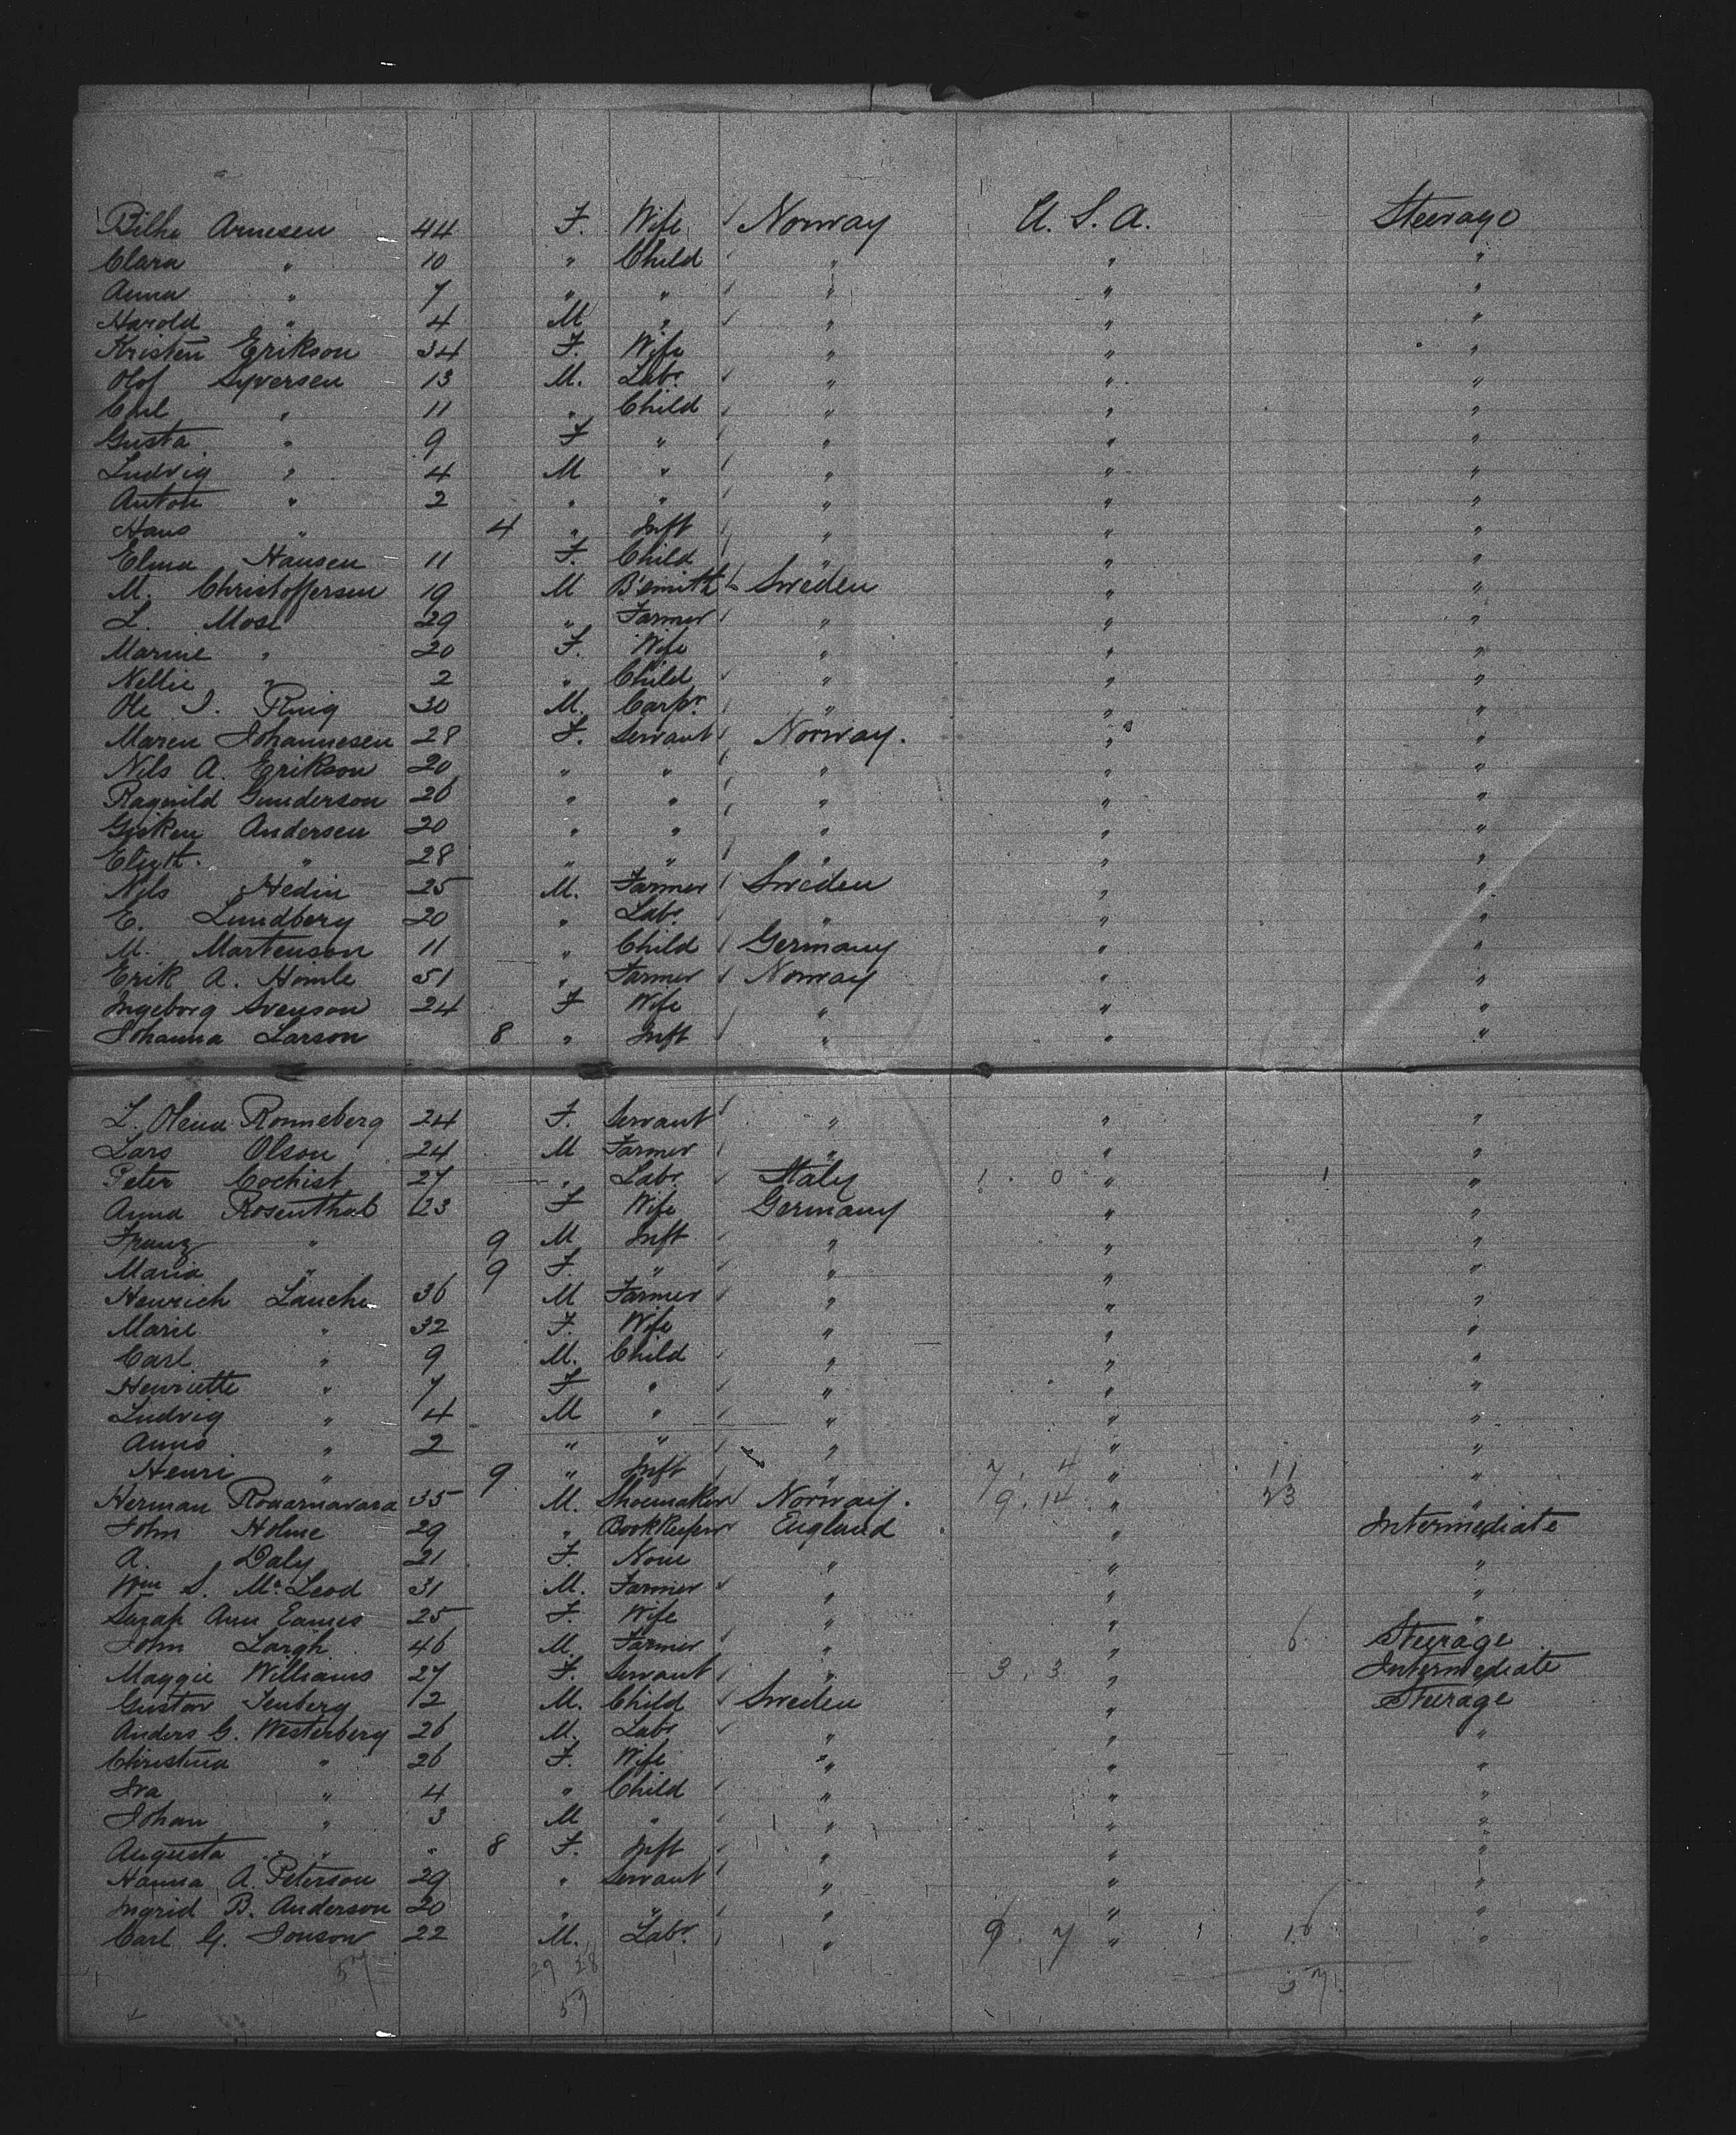 Bilhe Arnesen 44 F. Wife Norway U. S. A. Steerage
Clara " 10 " Child " " "
Anna " 7 " " " " "
Harold " 4 M " " " "
Kristen Erikson 34 F. Wife " " "
Olof Syversen 13 M. Labr " " "
Carl " 11 " Child " " "
Gusta " 9 F " " " "
Ludvig " 4 M " " " "
Anton " 2 " " " " "
Hans " 4 " Inft " " "
Elma Hansen 11 F. Child " " "
M. Christoffersen 19 M B'smith Sweden " "
L. Mose 29 " Farmer " " "
Marine " 20 F. Wife " " "
Nellie " 2 " Child " " "
Ole J. Ruig 30 M. Carpr " " "
Maren Johannesen 28 F. Servant Norway. " "
Nils A. Erikson 20 " " " " "
Ragnild Gunderson 26 " " " " "
Gisken Andersen 20 " " " " "
Elizth. " 28 " " " " "
Nils Hedin 25 M. Farmer Sweden " "
E. Lundberg 20 " Labr " " "
M. Martenson 11 " Child Germany " "
Erik A. Homle 51 " Farmer Norway " "
Ingeborg Svenson 24 F Wife " " "
Johanna Larson 8 " Inft " " "
L. Olena Ronneberg 24 F. Servant " " "
Lars Olson 24 M Farmer " " "
Peter Cochist 27 " Labr Italy 1 . 0 " 1 "
Anna Rosenthal 23 F Wife Germany " "
Franz " 9 M Inft " " "
Maria " 9 F. " " " "
Henrich Lauche 36 M Farmer " " "
Marie " 32 F. Wife " " "
Carl " 9 M. Child " " "
Henriette " 7 F " " " "
Ludvig " 4 M " " " "
Anna " 2 " " " " "
Henri " 9 " Inft " 7 . 4 " 11 "
Herman 35 M. Shoemaker Norway. 9 . 14 " 23 "
John Holme 29 " Bookkeeper England " Intermediate
A. Daly 21 F. None " " "
Wm S. McLeod 31 M. Farmer " " "
Sarah Ann Eames 25 F. Wife " " "
John Largh 46 M. Farmer " " 6 Steerage
Maggie Williams 27 F. Servant " 3 . 3 " Intermediate
Gustav Tenberg 12 M. Child Sweden " Steerage
Anders G. Westerberg 26 M. Labr " " "
Christina " 26 F. Wife " " "
Iva " 4 " Child " " "
Johan " 3 M " " " "
Augusta " " 8 F. Inft " " "
Hanna A. Peterson 29 " Servant " " "
Ingrid B. Anderson 20 " " " " "
Carl G. Jonson 22 M. Labr " 9 . 7 " 16 "
57 29 28 57
57